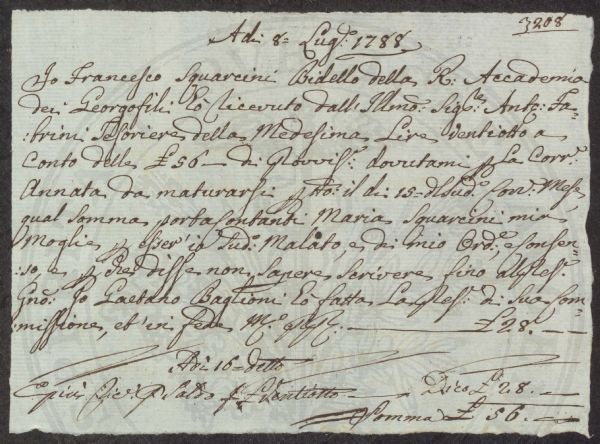 3208
Adi 8- Lug.o 1788
Io Francesco Squarcini Bidello della R: Accademia
dei Georgofili ho ricevuto dall'Illmo: Sig.re Ant:o Fa-
:brini Tesoriere della Medesima Lire ventiotto a
Conto delle £ 56 - di Provvis.e dovutami p La Corr.e
Annata da maturarsi p tto: il di 15- d Sud.o Corr.e Mese,
qual Somma porta contanti Maria Squarcini mia
Moglie, p esser io Sud.o Malato, e di mio Ord.e, e Consen-
:so, e p Lei disse non Sapere Scrivere fino al pres.e
Gno: Io Gaetano Baglioni ho fatta La pres.e di Sua Com-
missione, et in fede M.o ppr.a £ 28. —
Adi 16- detto
E più Ricev.o p Saldo £ Ventiotto Dico £ 28. —
Somma £ 56. —